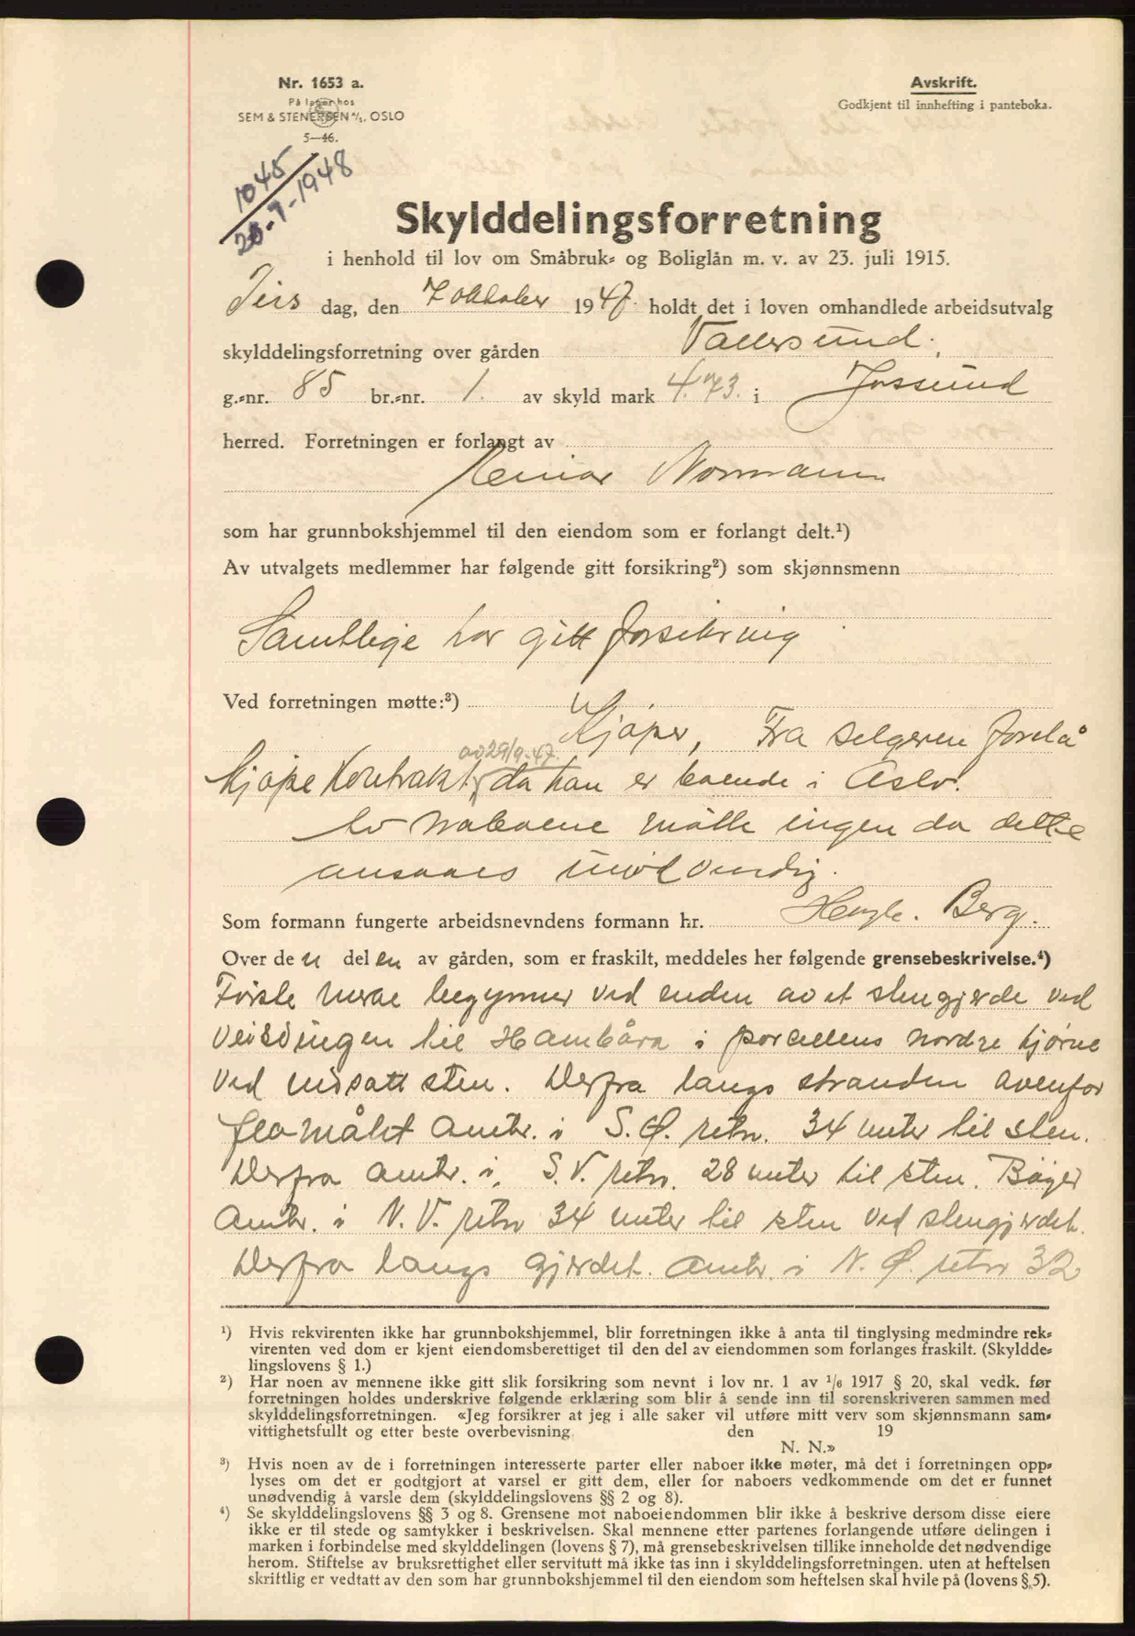 Nr. 1653 a.
På lager hos
SEM & STENERSEN A/S, OSLO
5—46.
Avskrift.
Godkjent til innhefting i panteboka.
1045
20-9-1948
Skylddelingsforretning
i henhold til lov om Småbruk- og Boliglån m. v. av 23. juli 1915.
Tirs dag, den 7 oktober 1947. holdt det i loven omhandlede arbeidsutvalg
skylddelingsforretning over gården Vallersund.
g.-nr. 85 br.-nr. 1. av skyld mark 4.73. i Jøssund
herred. Forretningen er forlangt av
Normann
som har grunnbokshjemmel til den eiendom som er forlangt delt.¹)
Av utvalgets medlemmer har følgende gitt forsikring²) som skjønnsmenn
Samtlige har gitt forsikring
Ved forretningen møtte:³)
Kjøper, Fra selgeren forelå
av 29/9-47.
Kjøpekontrakt, da han er boende i Oslo.
Av naboene møtte ingen da dette
ansaaes unødvendig.
Som formann fungerte arbeidsnevndens formann hr. Berg.
Over de n del en av gården, som er fraskilt, meddeles her følgende grensebeskrivelse.⁴)
Første merke begynner ved enden av et stengjerde ved
veisvingen til Hambåra i parcellens nordre hjørne
ved nedsatt sten. Derfra langs stranden ovenfor
flomålet omtr. i S.Ø. retn. 34 meter til sten.
Derfra omtr. i S.V. retn. 28 meter til sten. Bøyer
omtr. i N.V. retn 34 meter til sten ved stengjerdet.
Derfra langs gjerdet omtr. i N.Ø. retn 32
¹) Hvis rekvirenten ikke har grunnbokshjemmel, blir forretningen ikke å anta til tinglysing medmindre rek-
virenten ved dom er kjent eiendomsberettiget til den del av eiendommen som forlanges fraskilt. (Skyldde-
lingslovens § 1.)
²) Har noen av mennene ikke gitt slik forsikring som nevnt i lov nr. 1 av 1/6 1917 § 20, skal vedk. før
forretningen holdes underskrive følgende erklæring som blir å sende inn til sorenskriveren sammen med
skylddelingsforretningen. «Jeg forsikrer at jeg i alle saker vil utføre mitt verv som skjønnsmann sam-
vittighetsfullt og etter beste overbevisning den 19
N. N.»
³) Hvis noen av de i forretningen interesserte parter eller naboer ikke møter, må det i forretningen opp-
lyses om det er godtgjort at varsel er gitt dem, eller for naboers vedkommende om det er funnet
unødvendig å varsle dem (skylddelingslovens §§ 2 og 8).
⁴) Se skylddelingslovens §§ 3 og 8. Grensene mot naboeiendommen blir ikke å beskrive dersom disse eiere
ikke er til stede og samtykker i beskrivelsen. Skal mennene etter partenes forlangende utføre delingen i
marken i forbindelse med skylddelingen (lovens § 7), må grensebeskrivelsen tillike inneholde det nødvendige
herom. Stiftelse av bruksrettighet eller servitutt må ikke tas inn i skylddelingsforretningen. uten at heftelsen
skriftlig er vedtatt av den som har grunnbokshjemmel til den eiendom som heftelsen skal hvile på (lovens § 5).